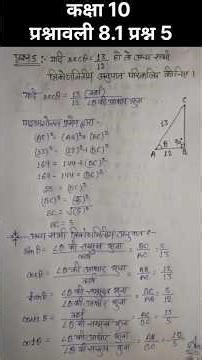 कक्षा 10
प्रश्नावली 8.1 प्रश्न 5
प्रश्न 5:- यदि secθ = 13/12 हो तो अन्य सभी
त्रिकोणमितीय अनुपात परिकलित कीजिए।
यदि secθ = 13/12 (कर्ण)/∠θ की आधार भुजा
C
13
5
A
12
B
पाइथागोरस प्रमेय द्वारा -
(AC)² = (AB)² + (BC)²
(13)² = (12)² + (BC)²
169 = 144 + (BC)²
169 - 144 = (BC)²
25 = (BC)²
(BC)² = (5)²
BC = 5
अन्य सभी त्रिकोणमितीय अनुपात -
sinθ = ∠θ की सम्मुख भुजा/कर्ण = BC/AC = 5/13
cosθ = ∠θ की आधार भुजा/कर्ण = AB/AC = 12/13
tanθ = ∠θ की सम्मुख भुजा/∠θ की आधार भुजा = BC/AB = 5/12
cosecθ = कर्ण/∠θ की सम्मुख भुजा = AC/BC = 13/5
cotθ = ∠θ की आधार भुजा/∠θ की सम्मुख भुजा = AB/BC = 12/5